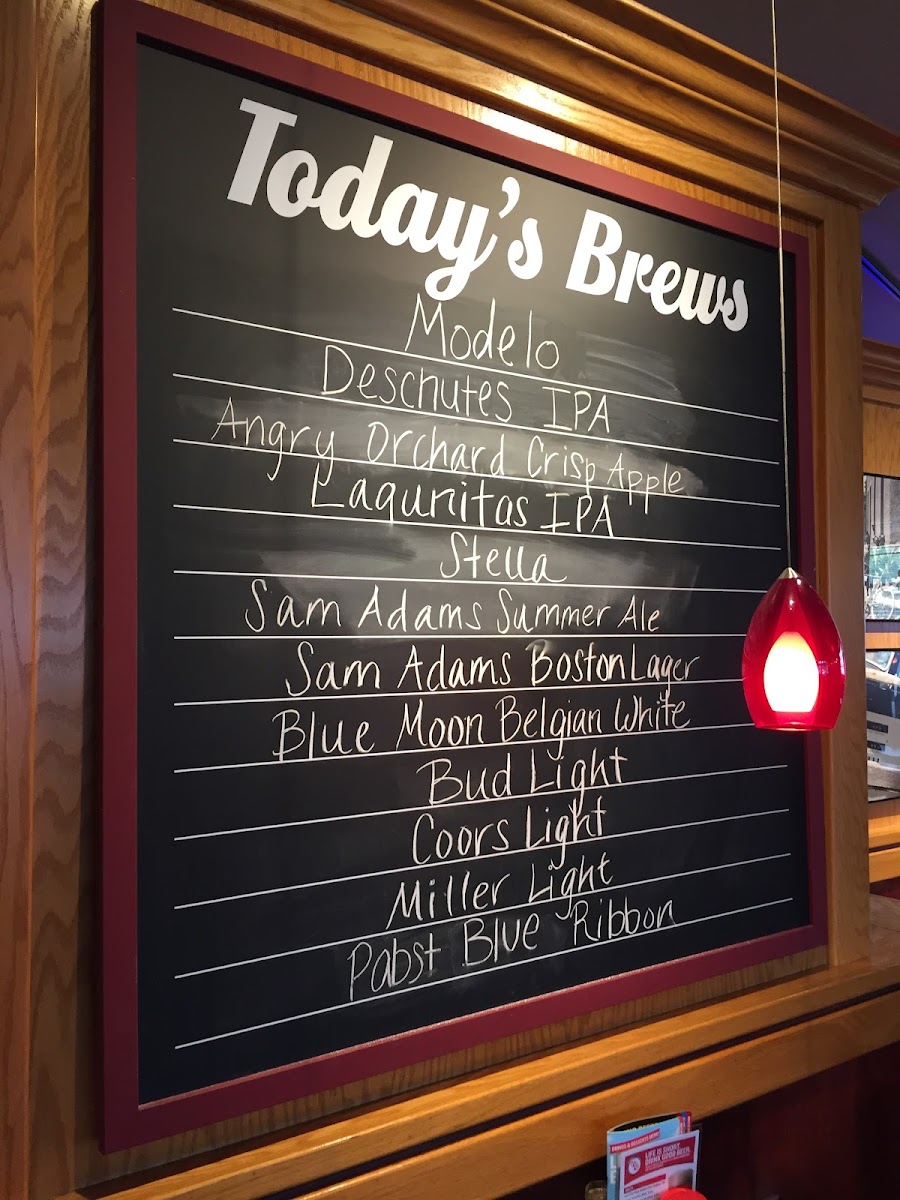 Today's Brews
Modelo
Deschutes IPA
Angry Orchard Crisp Apple
Lagunitas IPA
Stella
Sam Adams Summer Ale
Sam Adams Boston Lager
Blue Moon Belgian White
Bud Light
Coors Light
Miller Light
Pabst Blue Ribbon
LIFE IS SHORT.
DRINK GOOD BEER.